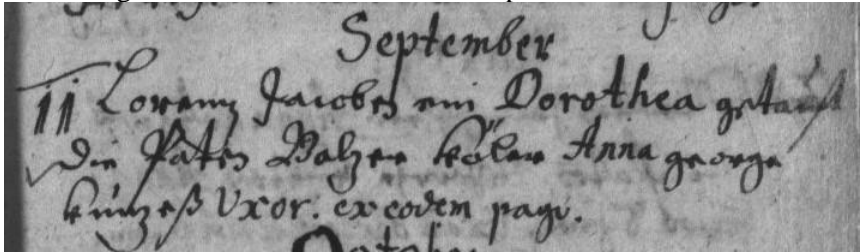 September
11 Lorenz Jacoben ein Dorothea getauft
Die Paten Balzer Köler Anna george
Künzeß Uxor. ex eodem pago.
October